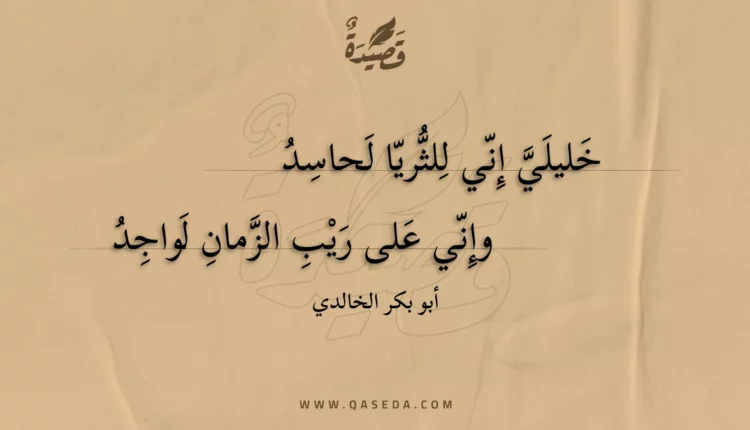 قَصِيْدَةٌ
خَليلَيَّ إِنّي لِلثُّرَيّا لَحاسِدُ
وإِنّي عَلى رَيْبِ الزَّمانِ لَواجِدُ
أبو بكر الخالدي
WWW.QASEDA.COM